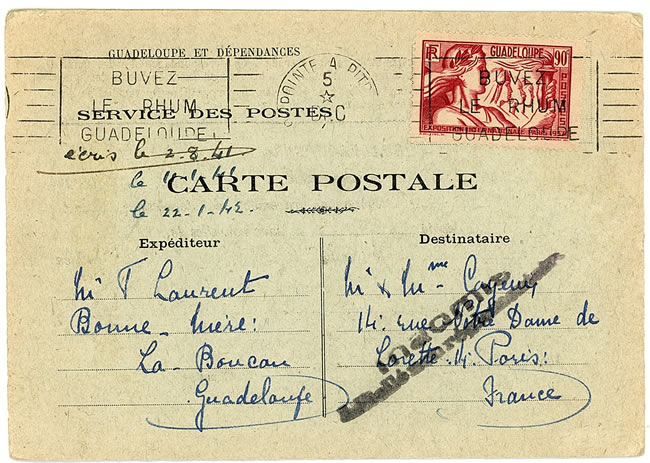 GUADELOUPE ET DÉPENDANCES
BUVEZ
LE RHUM
GUADELOUPE
POINTE A PITRE
5
DEC
RF GUADELOUPE 90c
POSTES
BUVEZ
LE RHUM
GUADELOUPE
EXPOSITION INTERNATIONALE PARIS 1937
SERVICE DES POSTES
écris le 2.8.41
le
le 22-1-42.
CARTE POSTALE
Expéditeur
Mr T Laurent
Bonne-Mère:
La-Boucan
Guadeloupe
Destinataire
Mr & Mme
14. rue Notre Dame de
Lorette. Paris:
France